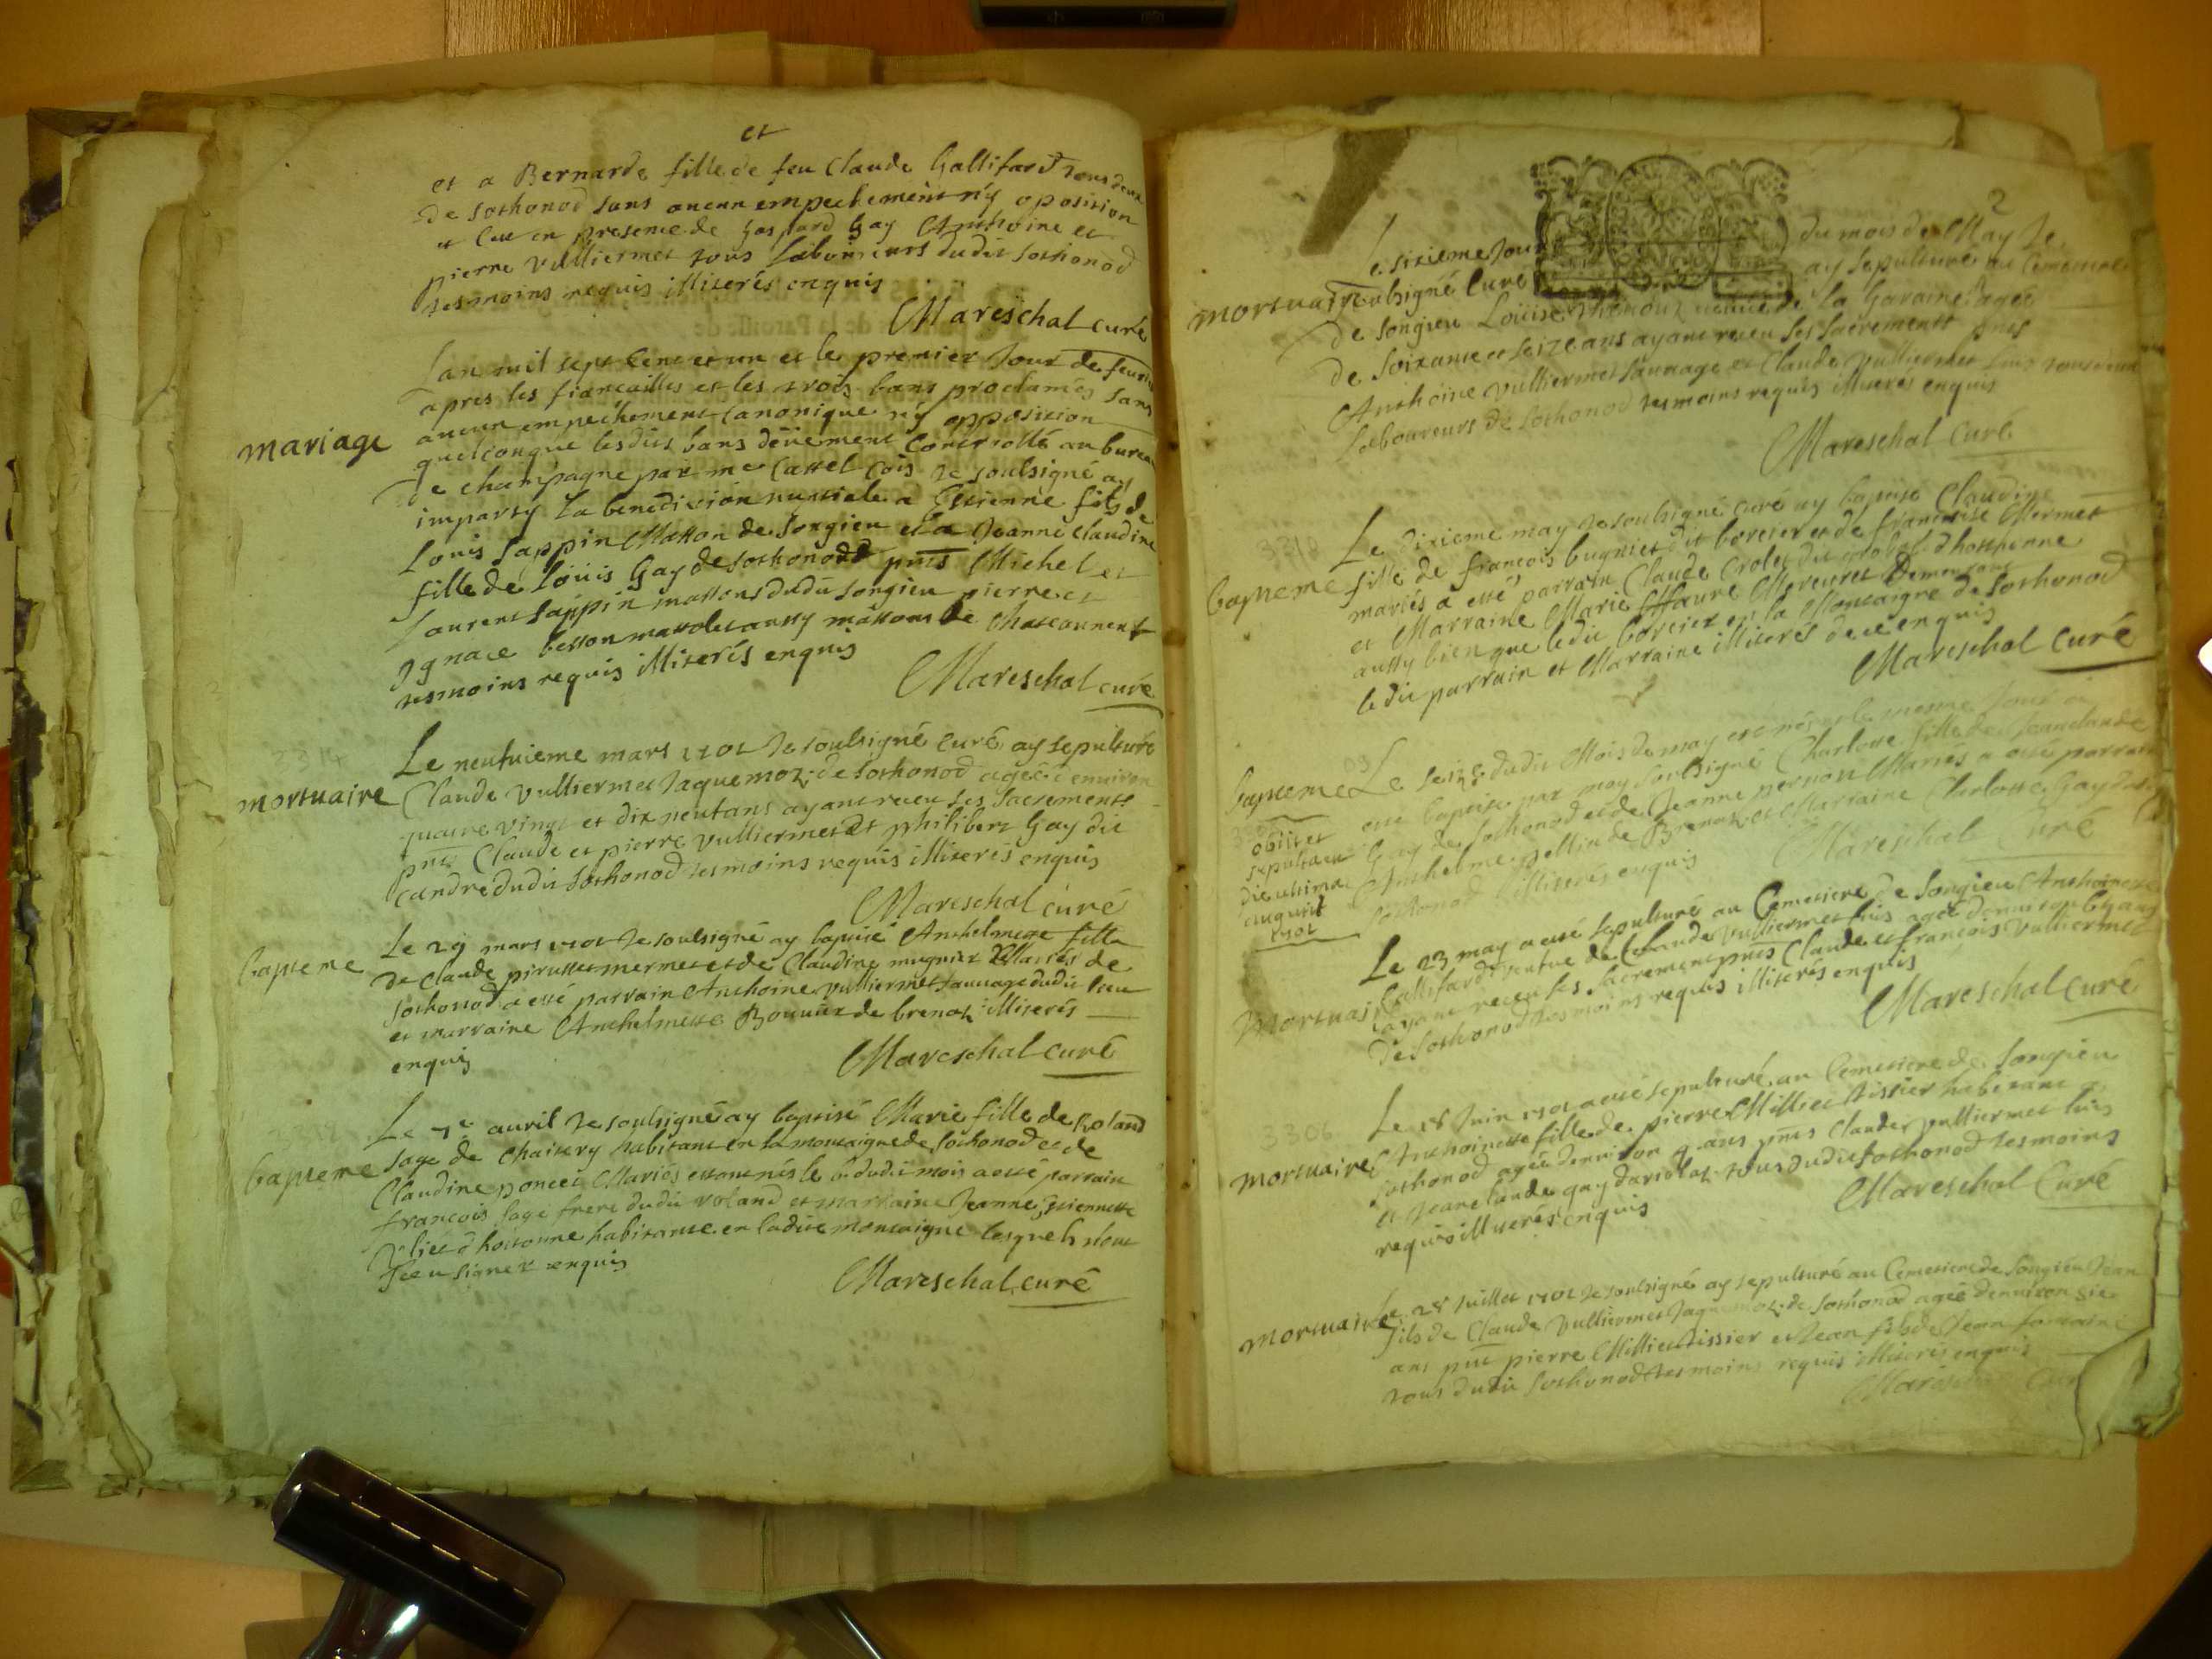 et
et a Bernarde fille de feu Claude Gallifard tous deux
de Sothonod sans aucun empechement n'y oposition
et ce en presence de Gaspard Gay Anthoine et
pierre vulliermet tous laboureurs dudit Sothonod
tesmoins requis illiterés enquis
Mareschal curé
mariage
Lan mil sept cent et un et le premier jour de feurier
apres les fiancailles et les trois bans proclamés sans
aucun empechement canonique n'y opposition
quelconque lesdits bans deüement controllé au bureau
de champagne par me Cattel Cois je soubsigné ay
imparty la benediction nuptiale a Estienne fils de
Louis Sappin Masson de Songieu et a Jeanne Claudine
fille de Loüis Gay de Sothonod pnts Michel et
Laurent Sappin massons dudit Songieu pierre et
Ignace besson massons de
tesmoins requis illiterés enquis
Mareschal curé
mortuaire
Le neufuieme mars 1701 Je soubsigné curé ay sepulturé
Claude vulliermet Jaquemoz de Sothonod agee d'enuiron
quatre vingt et dix neuf ans ayant receu ses sacrements
pnts Claude et pierre vulliermet et philibert Gay dit
Candre dudit Sothonod tesmoins requis illiterés enquis
Mareschal curé
bapteme
Le 29 mars 1701 Je soubsigné ay baptisé Anthelmette fille
de Claude pirusset mermet et de Claudine mugnier Mariés de
Sothonod a esté parrain Anthoine vulliermet sauuage dudit lieu
et marraine Anthelmette Bouuier de brenaz illiterés
enquis
Mareschal curé
bapteme
Le 7e auril Je soubsigné ay baptisé Marie fille de Roland
Sage de Chaisery habitant en la montaigne de Sothonod et de
Claudine poncet Mariés estant nés le 6 dudit mois a esté parrain
francois Sage frere dudit roland et marraine Jeanne Estiennette
d'hotonne habitante en ladite montaigne lesquels n'ont
sceu signer enquis
Mareschal curé
2
mortuaire
Le sixieme jour du mois de May Je
soubsigné Curé ay sepulturé au Cemetiere
de Songieu Loüise veuue de la Garaine agée
de soixante et seize ans ayant receu ses sacrements pnts
Anthoine vulliermet sauuage et Claude vulliermet tous deux
laboureurs de Sothonod tesmoins requis illiterés enquis
Mareschal Curé
bapteme
Le dixieme may Je soubsigné curé ay baptisé Claudine
fille de francois bugniet dit borcier et de francoise Mermet
mariés a esté parrain Claude Crolet dit d'hottonne
et Marraine Marie Demeurant
aussy bien que ledit borcier en la Montaigne de Sothonod
ledit parrain et Marraine illiterés de ce enquis
Mareschal Curé
bapteme
Le seize dudit Mois de may est née et le mesme jour a
esté baptisée par moy soubsigné Charlotte fille de Jeanclaude
Gay de Sothonod et de Jeanne pernon Mariés a esté parrain
Anthelme pellin de Brenaz et Marraine Charlotte Gay de
Sothonod illiterés enquis
Mareschal Curé
obiit et
sepulta est
die ultima
augusti
1701
mortuaire
Le 23 may a esté sepulturé au Cemetiere de Songieu Anthoinette
Gallifard veufue de Claude vulliermet luis agée d'enuiron 64 ans
ayant receu ses sacrements pnts Claude et francois vulliermet
de Sothonod tesmoins requis illiterés enquis
Mareschal Curé
3306
mortuaire
Le 18 Juin 1701 a esté sepulturé au Cemetiere de Songieu
Anthoinette fille de pierre Milliet tissier habitant a
Sothonod agée d'enuiron 9 ans pnts Claude vulliermet luis
et Jeanclaude gay dariolaz tous dudit Sothonod tesmoins
requis illiterés enquis
Mareschal Curé
mortuaire
Le 28 Juillet 1701 Je soubsigné ay sepulturé au Cemetiere de Songieu Jean
fils de Claude vulliermet Jaquemoz de Sothonod agée d'enuiron six
ans pnts pierre Milliet tissier et Jean fils de Jean fontaine
tous dudit Sothonod tesmoins requis illiterés enquis
Mareschal Curé